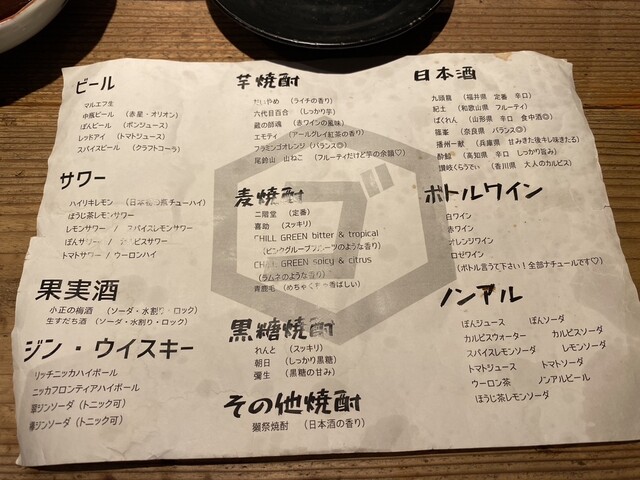 ビール
マルエフ生
中瓶ビール （赤星・オリオン）
ぽんビール （ポンジュース）
レッドアイ （トマトジュース）
スパイスビール （クラフトコーラ）
サワー
ハイリキレモン （日本初の瓶チューハイ）
ほうじ茶レモンサワー
レモンサワー / スパイスレモンサワー
ぽんサワー / カルピスサワー
トマトサワー / ウーロンハイ
果実酒
小正の梅酒 （ソーダ・水割り・ロック）
生すだち酒 （ソーダ・水割り・ロック）
ジン・ウイスキー
リッチニッカハイボール
ニッカフロンティアハイボール
翠ジンソーダ（トニック可）
ジンソーダ（トニック可）
芋焼酎
だいやめ （ライチの香り）
六代目百合 （しっかり芋）
蔵の師魂 （赤ワインの風味）
エモティ （アールグレイ紅茶の香り）
フラミンゴオレンジ（バランス◎）
尾鈴山 山ねこ （フルーティだけど芋の余韻♡）
麦焼酎
二階堂 （定番）
喜助 （スッキリ）
CHILL GREEN bitter & tropical
（ピンクグループフルーツのような香り）
CHILL GREEN spicy & citrus
（ラムネのような香り）
青鹿毛 （めちゃくちゃ香ばしい）
黒糖焼酎
れんと （スッキリ）
朝日 （しっかり黒糖）
彌生 （黒糖の甘み）
その他焼酎
獺祭焼酎 （日本酒の香り）
日本酒
九頭龍 （福井県 定番 辛口）
紀土 （和歌山県 フルーティ）
ばくれん （山形県 辛口 食中酒◎）
福峯 （奈良県 バランス◎）
播州一献 （兵庫県 甘みきた後キレ味きたる）
酔鯨 （高知県 辛口 しっかり旨み）
讃岐くらうでぃ （香川県 大人のカルピス）
ボトルワイン
白ワイン
赤ワイン
オレンジワイン
ロゼワイン
（ボトル言うて下さい！全部ナチュールです♡）
ノンアル
ぽんジュース ぽんソーダ
カルピスウォーター カルピスソーダ
スパイスレモンソーダ レモンソーダ
トマトジュース トマトソーダ
ウーロン茶 ノンアルビール
ほうじ茶レモンソーダ